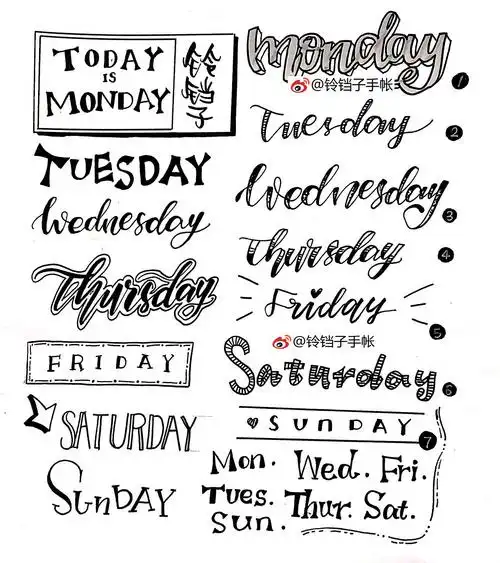 TODAY
IS
MONDAY
铃铛子
TUESDAY
Wednesday
Thursday
FRIDAY
SATURDAY
SunDAY
monday
@铃铛子手帐
1
Tuesday
2
Wednesday
3
Thursday
4
Friday
5
@铃铛子手帐
Saturday
6
SUNDAY
7
Mon. Wed. Fri.
Tues. Thur. Sat.
Sun.